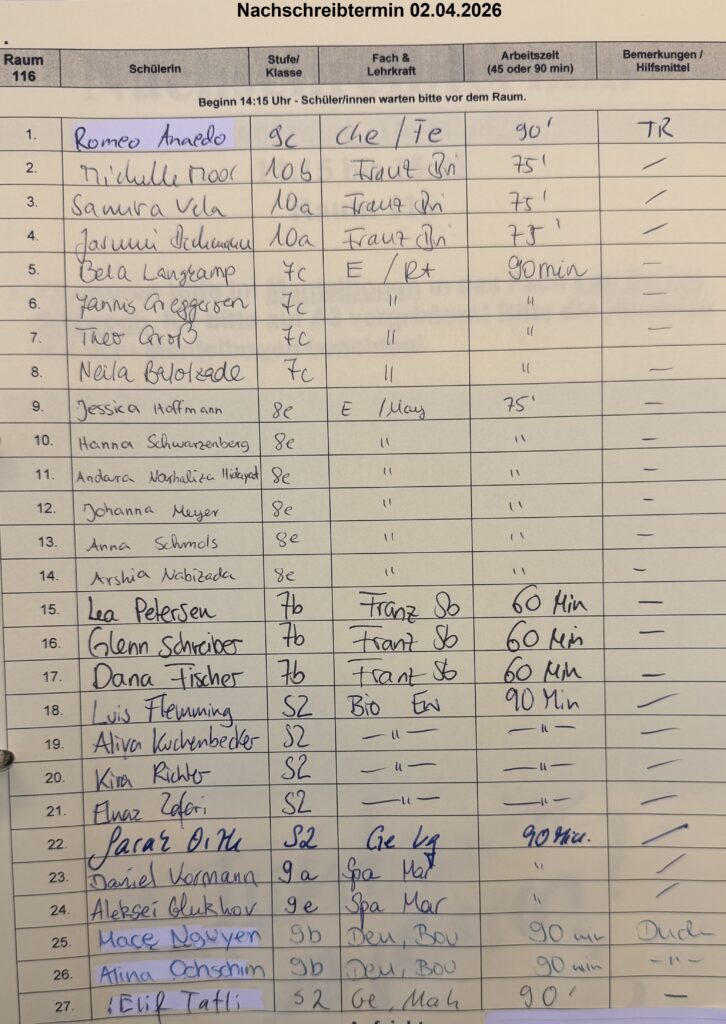 Nachschreibtermin 02.04.2026
Raum 116 SchülerIn Stufe/ Klasse Fach & Lehrkraft Arbeitszeit (45 oder 90 min) Bemerkungen / Hilfsmittel
Beginn 14:15 Uhr - Schüler/innen warten bitte vor dem Raum.
1. Romeo 9c Che / Te 90' TR
2. Michelle Moor 10b Franz Bri 75' /
3. Samira Vela 10a Franz Bri 75' /
4. 10a Franz Bri 75' /
5. Bela Langkamp 7c E / Rt 90min —
6. Jannis Greggersen 7c " " —
7. Theo Groß 7c " " —
8. Neila 7c " " —
9. Jessica Hoffmann 8e E /May 75' —
10. Hanna Schwarzenberg 8e " " —
11. Andara Nashaliza Hidayat 8e " " —
12. Johanna Meyer 8e " " —
13. Anna Schmols 8e " " —
14. Arshia Nabizada 8e " " —
15. Lea Petersen 7b Franz Sb 60 Min —
16. Glenn Schreiber 7b Franz Sb 60 Min —
17. Dana Fischer 7b Franz Sb 60 Min —
18. Luis Flemming S2 Bio Ew 90 Min /
19. Kuchenbecker S2 —"— —"— /
20. Kira Richter S2 —"— —"— /
21. Elnaz Zafari S2 —"— —"— /
22. S2 Ge 90 Min. /
23. Daniel Vormann 9a Spa Mar " /
24. Aleksei Glukhov 9e Spa Mar " /
25. Nguyen 9b Deu, Bou 90 min
26. Alina Ochschim 9b Deu, Bou 90 min -"-
27. Elif Tatli S2 Ge, Mah 90' —